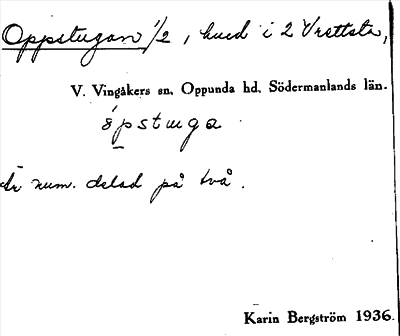 Oppstugan 1/2, hued i 2 Vrettsta,
V. Vingåkers sn. Oppunda hd. Södermanlands län.
öpstuga
Är num. delad på två.
Karin Bergström 1936.